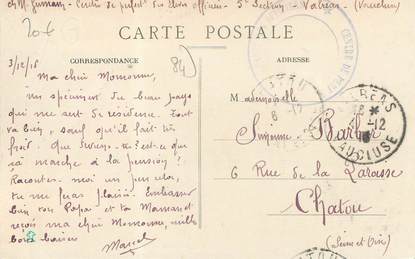 Centre de perfect. des Elèves officiers - 5e Section - Valréas (Vaucluse)
20 €
CARTE POSTALE
84
CORRESPONDANCE
ADRESSE
3/12/16
Ma chère Momonne,
un spécimen du beau pays
qui me sert de résidence. Tout
va bien, sauf qu'il fait très
froid. Que deviens-tu? est-ce que
ça marche à la pension?
Racontes-moi un peu cela,
tu me feras plaisir. Embrasse
bien ton Papa et ta Maman et
reçois ma chère Momonne, mille
bons baisers
Marcel
Mademoiselle
Suzanne
6 Rue de la
Chatou
(Seine et Oise)
CENTRE DE
VALREAS
VAUCLUSE